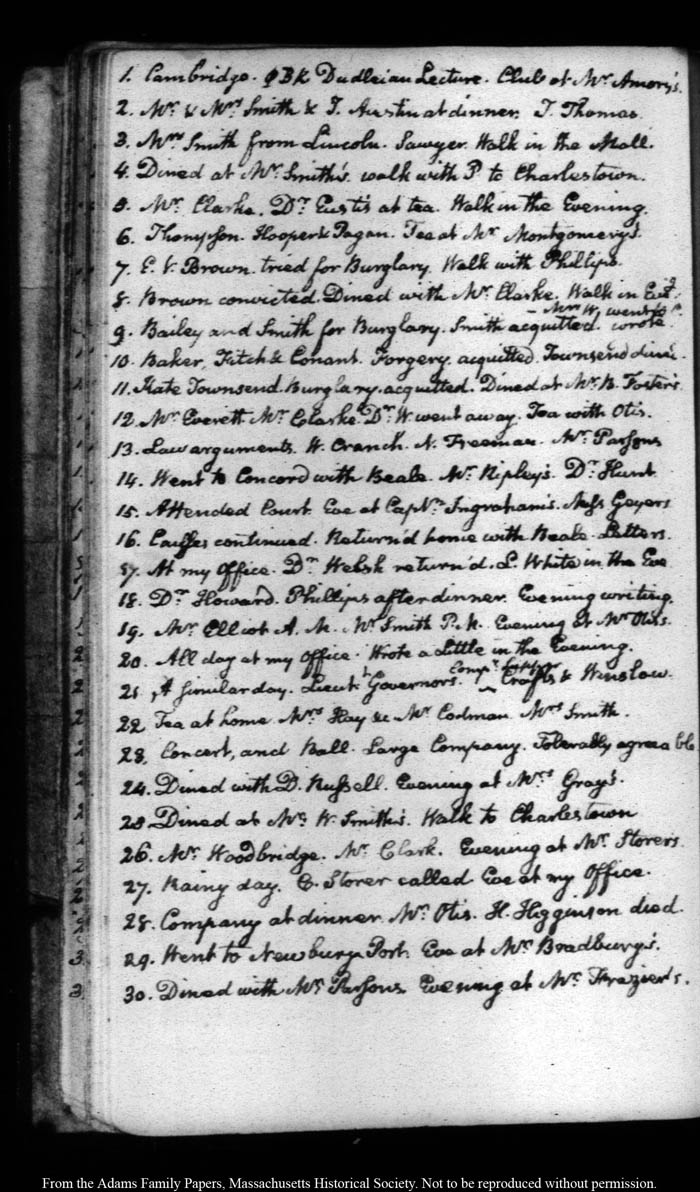 1. Cambridge. ΦBK Dudleian Lecture. Club at Mr Amory's.
2. Mr & Mrs Smith & J. Austin at dinner. J. Thomas.
3. Mrs Smith from Lincoln. Sawyer. Walk in the Mall.
4. Dined at Mr Smith's. walk with P. to Charlestown.
5. Mr. Clarke. Dr Eustis at tea. Walk in the Evening.
6. Thompson. Hooper & Pagan. Tea at Mr Montgomery's.
7. E. V. Brown. tried for Burglary. Walk with Phillips.
8. Brown convicted. Dined with Mr Clarke. Walk in Eve
Mrs W. went to
9. Bailey and Smith for Burglary. Smith acquitted. wrote
10. Baker, Fitch & Conant. Forgery. acquitted. Townsend
11. Kate Townsend. Burglary. acquitted. Dined at Mr B. Foster's.
12. Mr Everett. Mr Clarke. Dr W went away. Tea with Otis.
13. Law arguments. W. Cranch. N. Freeman. Mr Parsons
14. Went to Concord with Beale. Mr Ripley's. Dr Hunt.
15. Attended Court. Eve at Captn Ingraham's. Geyers
16. Causes continued. Return'd home with Beale. Letters.
17. At my Office. Dr Welsh return'd. L. White in the Eve
18. Dr Howard. Phillips after dinner. Evening writing.
19. Mr Elliot A. M. Mr Smith P. M. Evening at Mr Otis.
20. All day at my Office. Wrote a Little in the Evening.
21. A similar day. Lieut Governors. Compy Crafts & Winslow.
22. Tea at home. Mrs Hay &c Mr Codman. Mrs Smith.
23. Concert, and Ball. Large Company. Tolerably agreeable
24. Dined with D. Russell. Evening at Mrs Gray's.
25. Dined at Mr W. Smith's. Walk to Charlestown
26. Mr Woodbridge. Mr Clark. Evening at Mr Storer's.
27. Rainy day. C. Storer called Eve at my Office.
28. Company at dinner. Mr Otis. H. Higginson died.
29. Went to Newbury-Port. Eve at Mr Bradbury's.
30. Dined with Mr Parsons. Evening at Mr Frazier's.
From the Adams Family Papers, Massachusetts Historical Society. Not to be reproduced without permission.